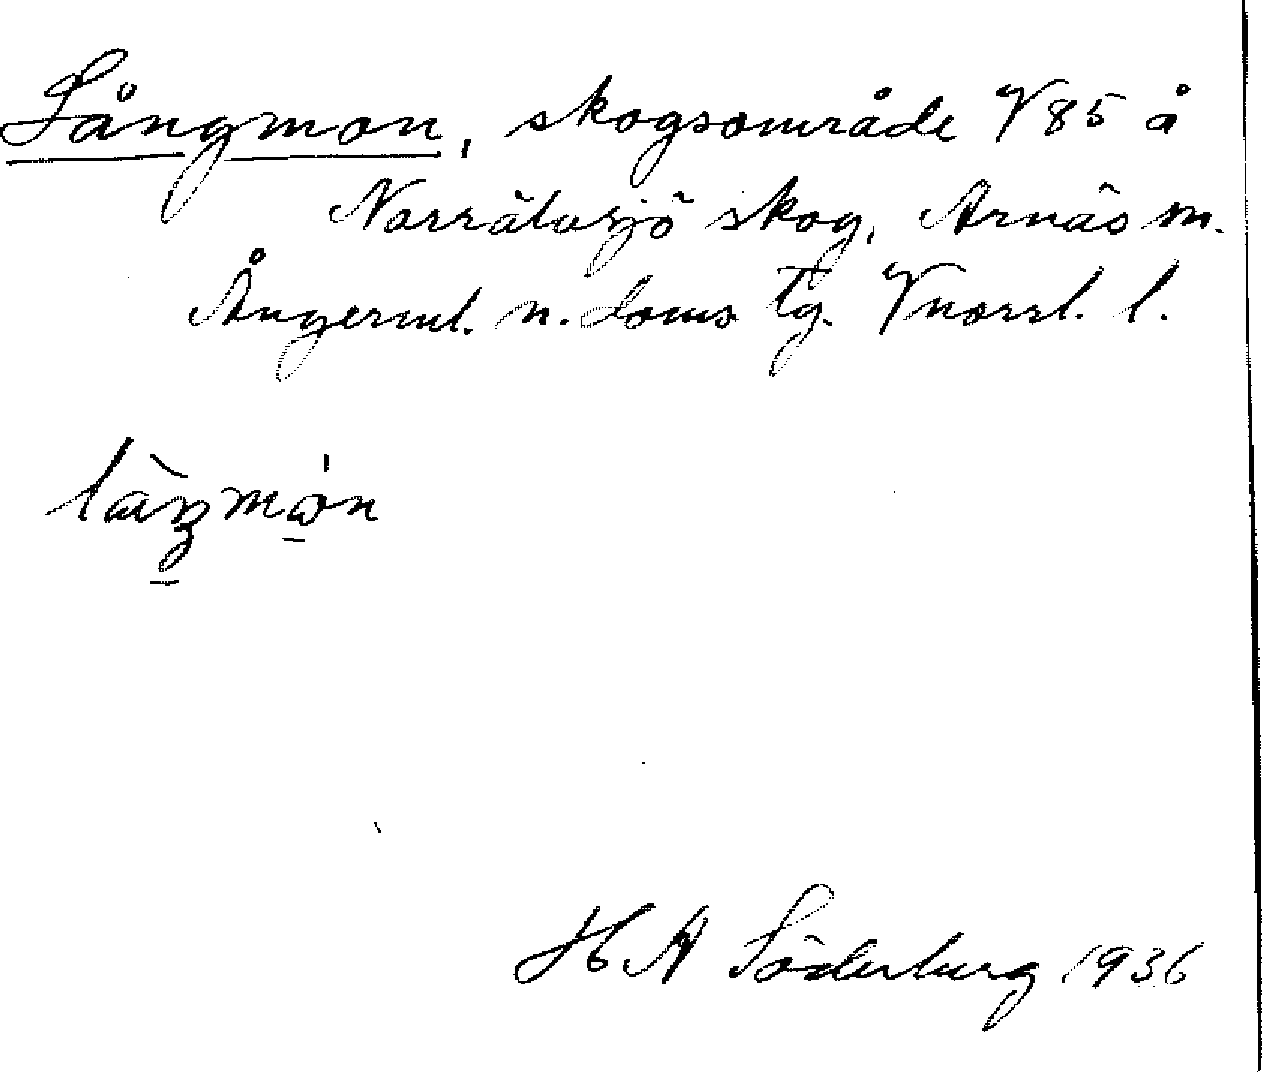 Långmon, skogsområde V 85 å
Norrälvsjö skog, Arnäs m.
Ångerml. n. doms tg. Vnorrl. l.
H A Söderberg 1936